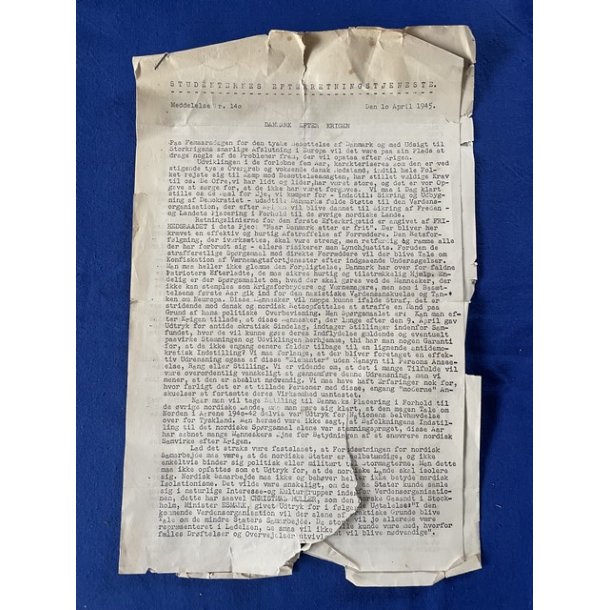 STUDENTERNES EFTERRETNINGSTJENESTE.
Meddelelse Nr. 140 Den 10 April 1945.
DANMARK EFTER KRIGEN
Paa Femaarsdagen for den tyske Besættelse af Danmark og med Udsigt til
Storkrigens snarlige Afslutning i Europa vil det være paa sin Plads at
drage nogle af de Problemer frem, der vil opstaa efter Krigen.
Udviklingen i de forløbne fem Aar, karakteriseres som den er ved
stigende tysk Overgreb og voksende dansk Modstand, indtil hele Fol-
ket rejste sig til Kamp mod Besættelsesmagten, har stillet vældige Krav
til os. De Ofre, vi har lidt og lider, har været store, og det er vor Op-
gave at sørge for, at de ikke har været forgæves. Vi maa i Dag klart
stille os de Maal for Øje, vi kæmper for - indadtil: Sikring og Udbyg-
ning af Demokratiet - udadtil: Danmarks fulde Støtte til den Verdens-
organisation, der efter Krigen vil blive dannet til Sikring af Freden -
og Landets Placering i Forhold til de øvrige nordiske Lande.
Retningslinierne for den første Efterkrigstid er angivet af FRI-
HEDSRAADET i dets Pjece: "Naar Danmark atter er frit". Der bliver her
krævet en effektiv og hurtig Afstraffelse af Forrædere. Den Retsfor-
følgning, der iværksættes, skal være streng, men retfærdig og ramme alle
der har forbrudt sig - ellers risikerer man Lynchjustits. Foruden de
strafferetlige Spørgsmaal mod direkte Forrædere vil der blive Tale om
Konfiskation af Værnemagtsfortjenester efter indgaaende Undersøgelser.
Man maa heller ikke glemme den Forpligtelse, Danmark har over for faldne
Patrioters Efterladte, de maa sikres hurtig og tilstrækkelig Hjælp. En-
delig er der Spørgsmaalet om, hvad der skal gøres ved de Mennesker, der
ikke kan stemples som Krigsforbrydere og Værnemagere, men som i Besæt-
telsens første Aar gik ind for den nazistiske Verdensanskuelse og Tan-
ken om Neuropa. Disse Mennesker vil næppe kunne ifalde Straf, det er
stridende mod dansk og nordisk Retsopfattelse at straffe en Mand paa
Grund af hans politiske Overbevisning. Men Spørgsmaalet er: Kan man ef-
ter Krigen tillade, at disse Mennesker, der længe efter den 9. April gav
Udtryk for antidemokratisk Sindelag, indtager Stillinger indenfor Sam-
fundet, hvor de vil kunne gøre deres Indflydelse gældende og eventuelt
paavirke Stemningen og Udviklingen herhjemme, thi har man nogen Garanti
for, at de ikke engang senere falder tilbage til en lignende antidemo-
kratisk Indstilling? Vi maa forlange, at der bliver foretaget en effek-
tiv Udrensning ogsaa af disse "Elementer" uden Hensyn til Persons Anse-
else, Rang eller Stilling. Vi er vidende om, at det i mange Tilfælde vil
være overordentlig vanskeligt at gennemføre denne Udrensning, men vi
mener, at den er absolut nødvendig. Vi maa have haft Erfaringer nok for,
hvor farligt det er at tillade Personer med disse, engang "moderne" An-
skuelser at fortsætte deres Virksomhed uantastet.
Naar man vil tage Stilling til Danmarks Placering i Forhold til
de øvrige nordiske Lande, maa man gøre sig klart, at den megen Tale om
Norden i Aarene 1940-42 delvis var Udtryk for Nationens Selvhævdelse
over for Tyskland. Men hermed være ikke sagt, at Befolkningens Indstil-
ling til det nordiske Spørgsmaal alene var stemningspræget, disse Aar
har aabnet mange Menneskers Øjne for Betydningen af et snævrere nordisk
Samvirke efter Krigen.
Lad det straks være fastslaaet, at Forudsætningen for nordisk
Samarbejde maa være, at de nordiske Stater er selvstændige, og ikke
enkeltvis binder sig politisk eller militært til Stormagterne. Men dette
maa ikke opfattes som et Udtryk for, at de nordiske Lande skal isolere
sig. Nordisk Samarbejde maa ikke og behøver heller ikke betyde nordisk
Isolationisme. Det vilde være ønskeligt, om de Stater kunde samle
sig i naturlige Interesse- og Kulturgrupper indenfor Verdensorganisatio-
nen, dette har saavel CHRISTMAS MØLLER, som den danske Gesandt i Stock-
holm, Minister givet Udtryk for i følgende Udtalelse: "I den
kommende Verdensorganisation vil der alene af praktiske Grunde blive
Tale om de mindre Staters Samarbejde. De store vil jo allerede være
repræsenteret i Ledelsen, de smaa vil ikke kunde være med, hvorfor
fælles Drøftelser og Overvejelser utvivlsomt vil blive nødvendige".